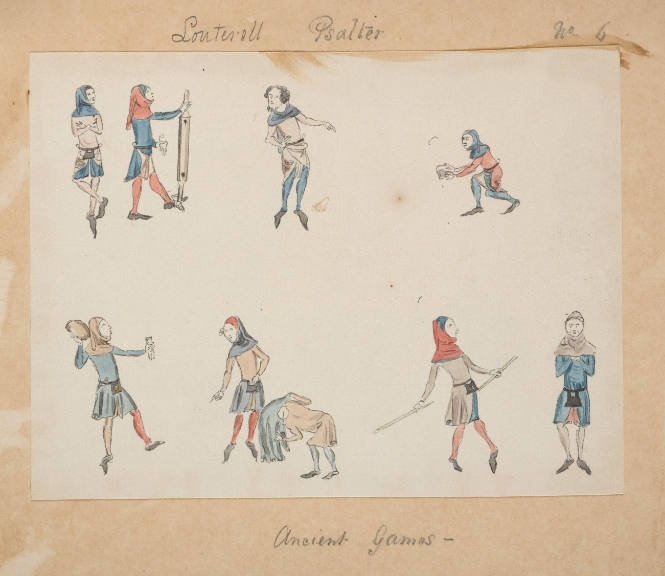 Louterell Psalter No 6
Ancient Games -